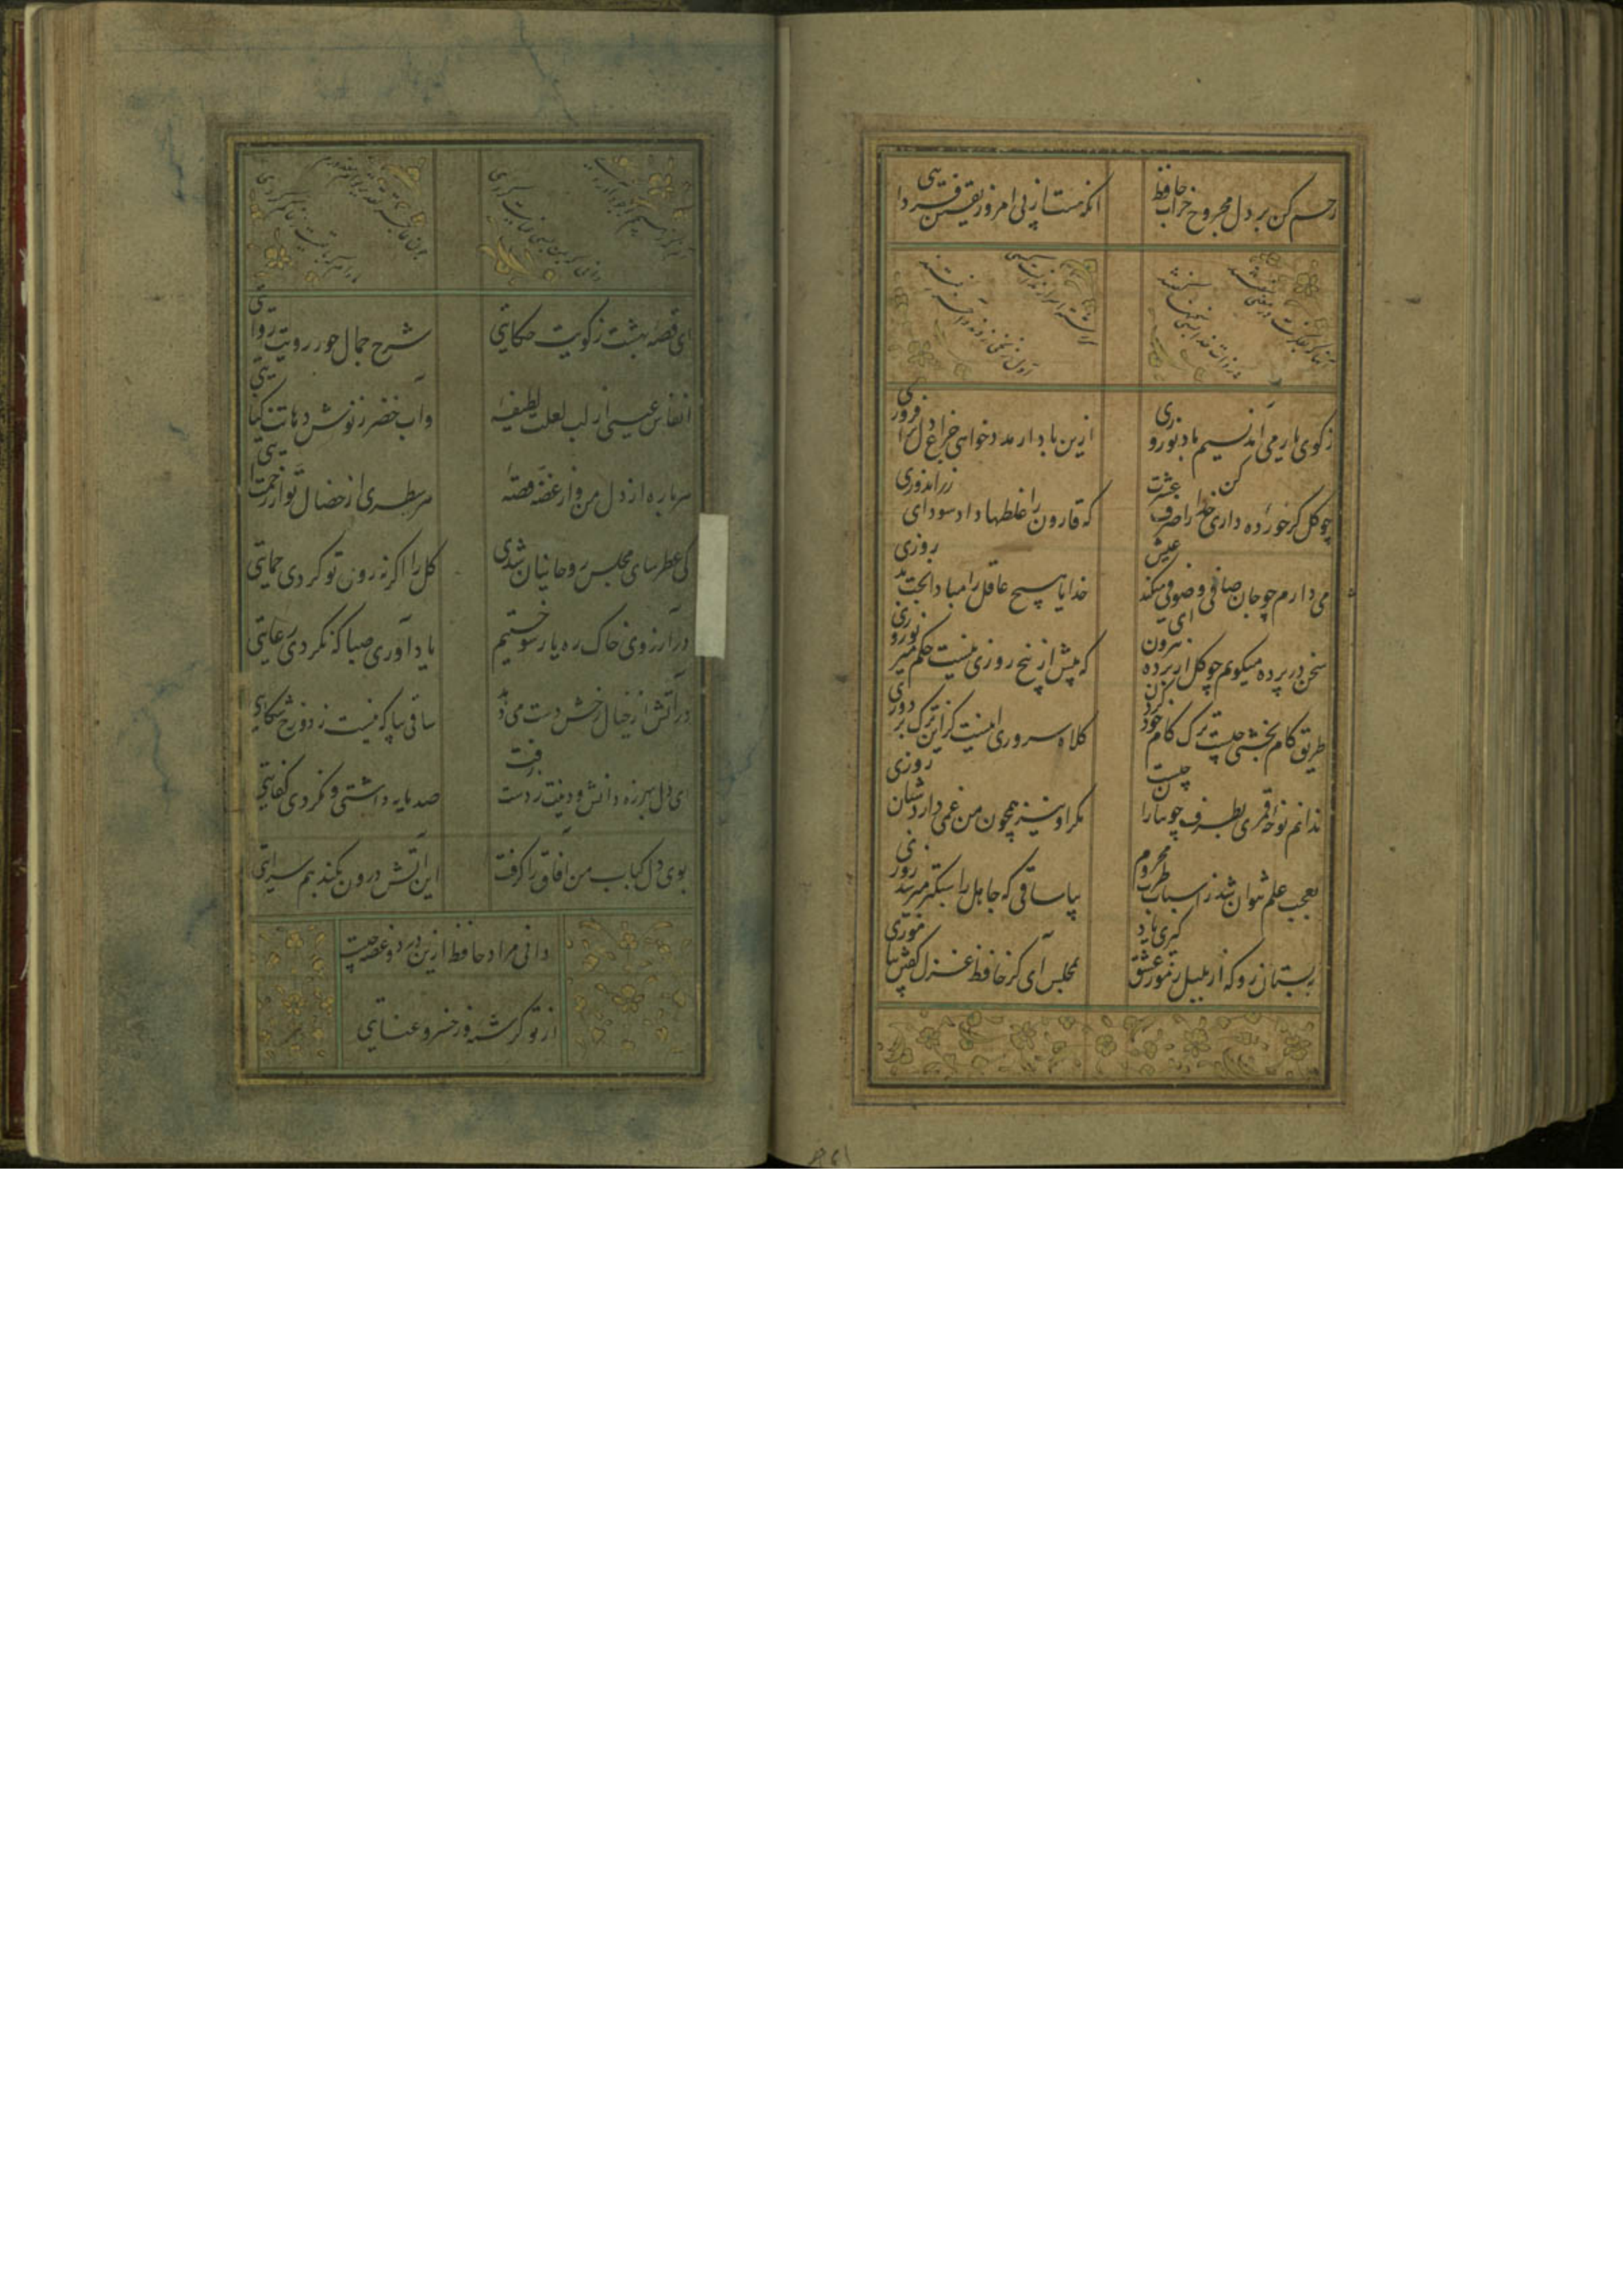 رحم کن بر دل مجروح خراب حافظ
زانکه هست از پی امروز یقین فردایی
ز کوی یار می آید نسیم باد نوروزی
ازین باد ار مدد خواهی چراغ دل برافروزی
چو گل گر خورده داری خدا را صرف عشرت کن
که قارون را غلطها داد سودای زراندوزی
می دارم چو جان صافی و صوفی میکند عیبش
خدایا هیچ عاقل را مبادا بخت بد روزی
سخن در پرده میگویم چو گل از پرده بیرون ای
که پیش از پنج روزی نیست حکم میر نوروزی
طریق کام بخشی چیست ترک کام خود کردن
کلاه سروری اینست کز این ترک بر دوزی
ندانم نوحه قمری بطرف جویباران چیست
مگر او نیز همچون من غمی دارد شبان روزی
بعجب علم نتوان شد ز اسباب طرب محروم
بیا ساقی که جاهل را سبکتر میرسد روزی
ببستان رو که از بلبل رموز عشق گیری یاد
بمجلس آی کز حافظ غزل گفتن بیاموزی
ای قصه بهشت ز کویت حکایتی
شرح جمال حور ز رویت روایتی
انفاس عیسی از لب لعلت لطیفه
وآب خضر ز نوش دهانت کنایتی
هر پاره از دل من و از غصه قصه
هر سطری از خصال تو از رحمت آیتی
کی عطرسای مجلس روحانیان شدی
گل را اگر نه روی تو کردی حمایتی
در آرزوی خاک ره یار سوختیم
یاد آوری صبا که نکردی رعایتی
در آتش از خیال رخش دست می دهد
ساقی بیا که نیست ز دوزخ شکایتی
ای دل بهرزه دانش و دینت ز دست رفت
صد مایه داشتی و نکردی کفایتی
بوی دل کباب من آفاق را گرفت
این آتش درون بکند هم سرایتی
دانی مراد حافظ ازین درد و غصه چیست
از تو کرشمه و ز خسرو عنایتی